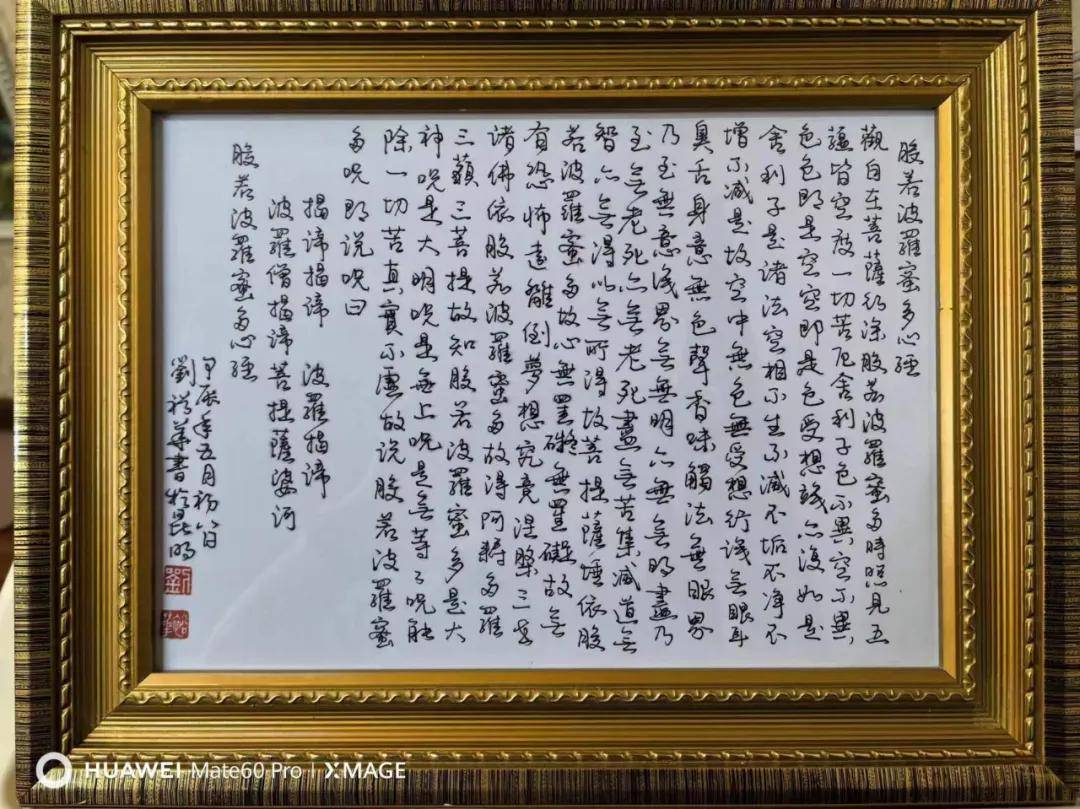 般若波羅蜜多心經
觀自在菩薩行深般若波羅蜜多時照見五
蘊皆空度一切苦厄舍利子色不異空不異
色色即是空空即是色受想識亦復如是
舍利子是諸法空相不生不滅不垢不净不
增不减是故空中無色無受想行識無眼耳
鼻舌身意無色聲香味觸法無眼界
乃至無意識界無無明亦無無明盡乃
至無老死亦無老死盡無苦集滅道無
智亦無得以無所得故菩提薩埵依般
若波羅蜜多故心無罣礙無罣礙故無
有恐怖遠離倒夢想究竟涅槃三世
諸佛依般若波羅蜜多故得阿耨多羅
三藐三菩提故知般若波羅蜜多是大
神咒是大明咒是無上咒是無等々咒能
除一切苦真實不虛故说般若波羅蜜
多咒即说咒曰
揭諦揭諦 波羅揭諦
波羅僧揭諦菩提薩婆訶
般若波羅蜜多心經
甲辰年五月初八日
劉裕華書於昆明
劉
HUAWEI Mate60 Pro | XMAGE